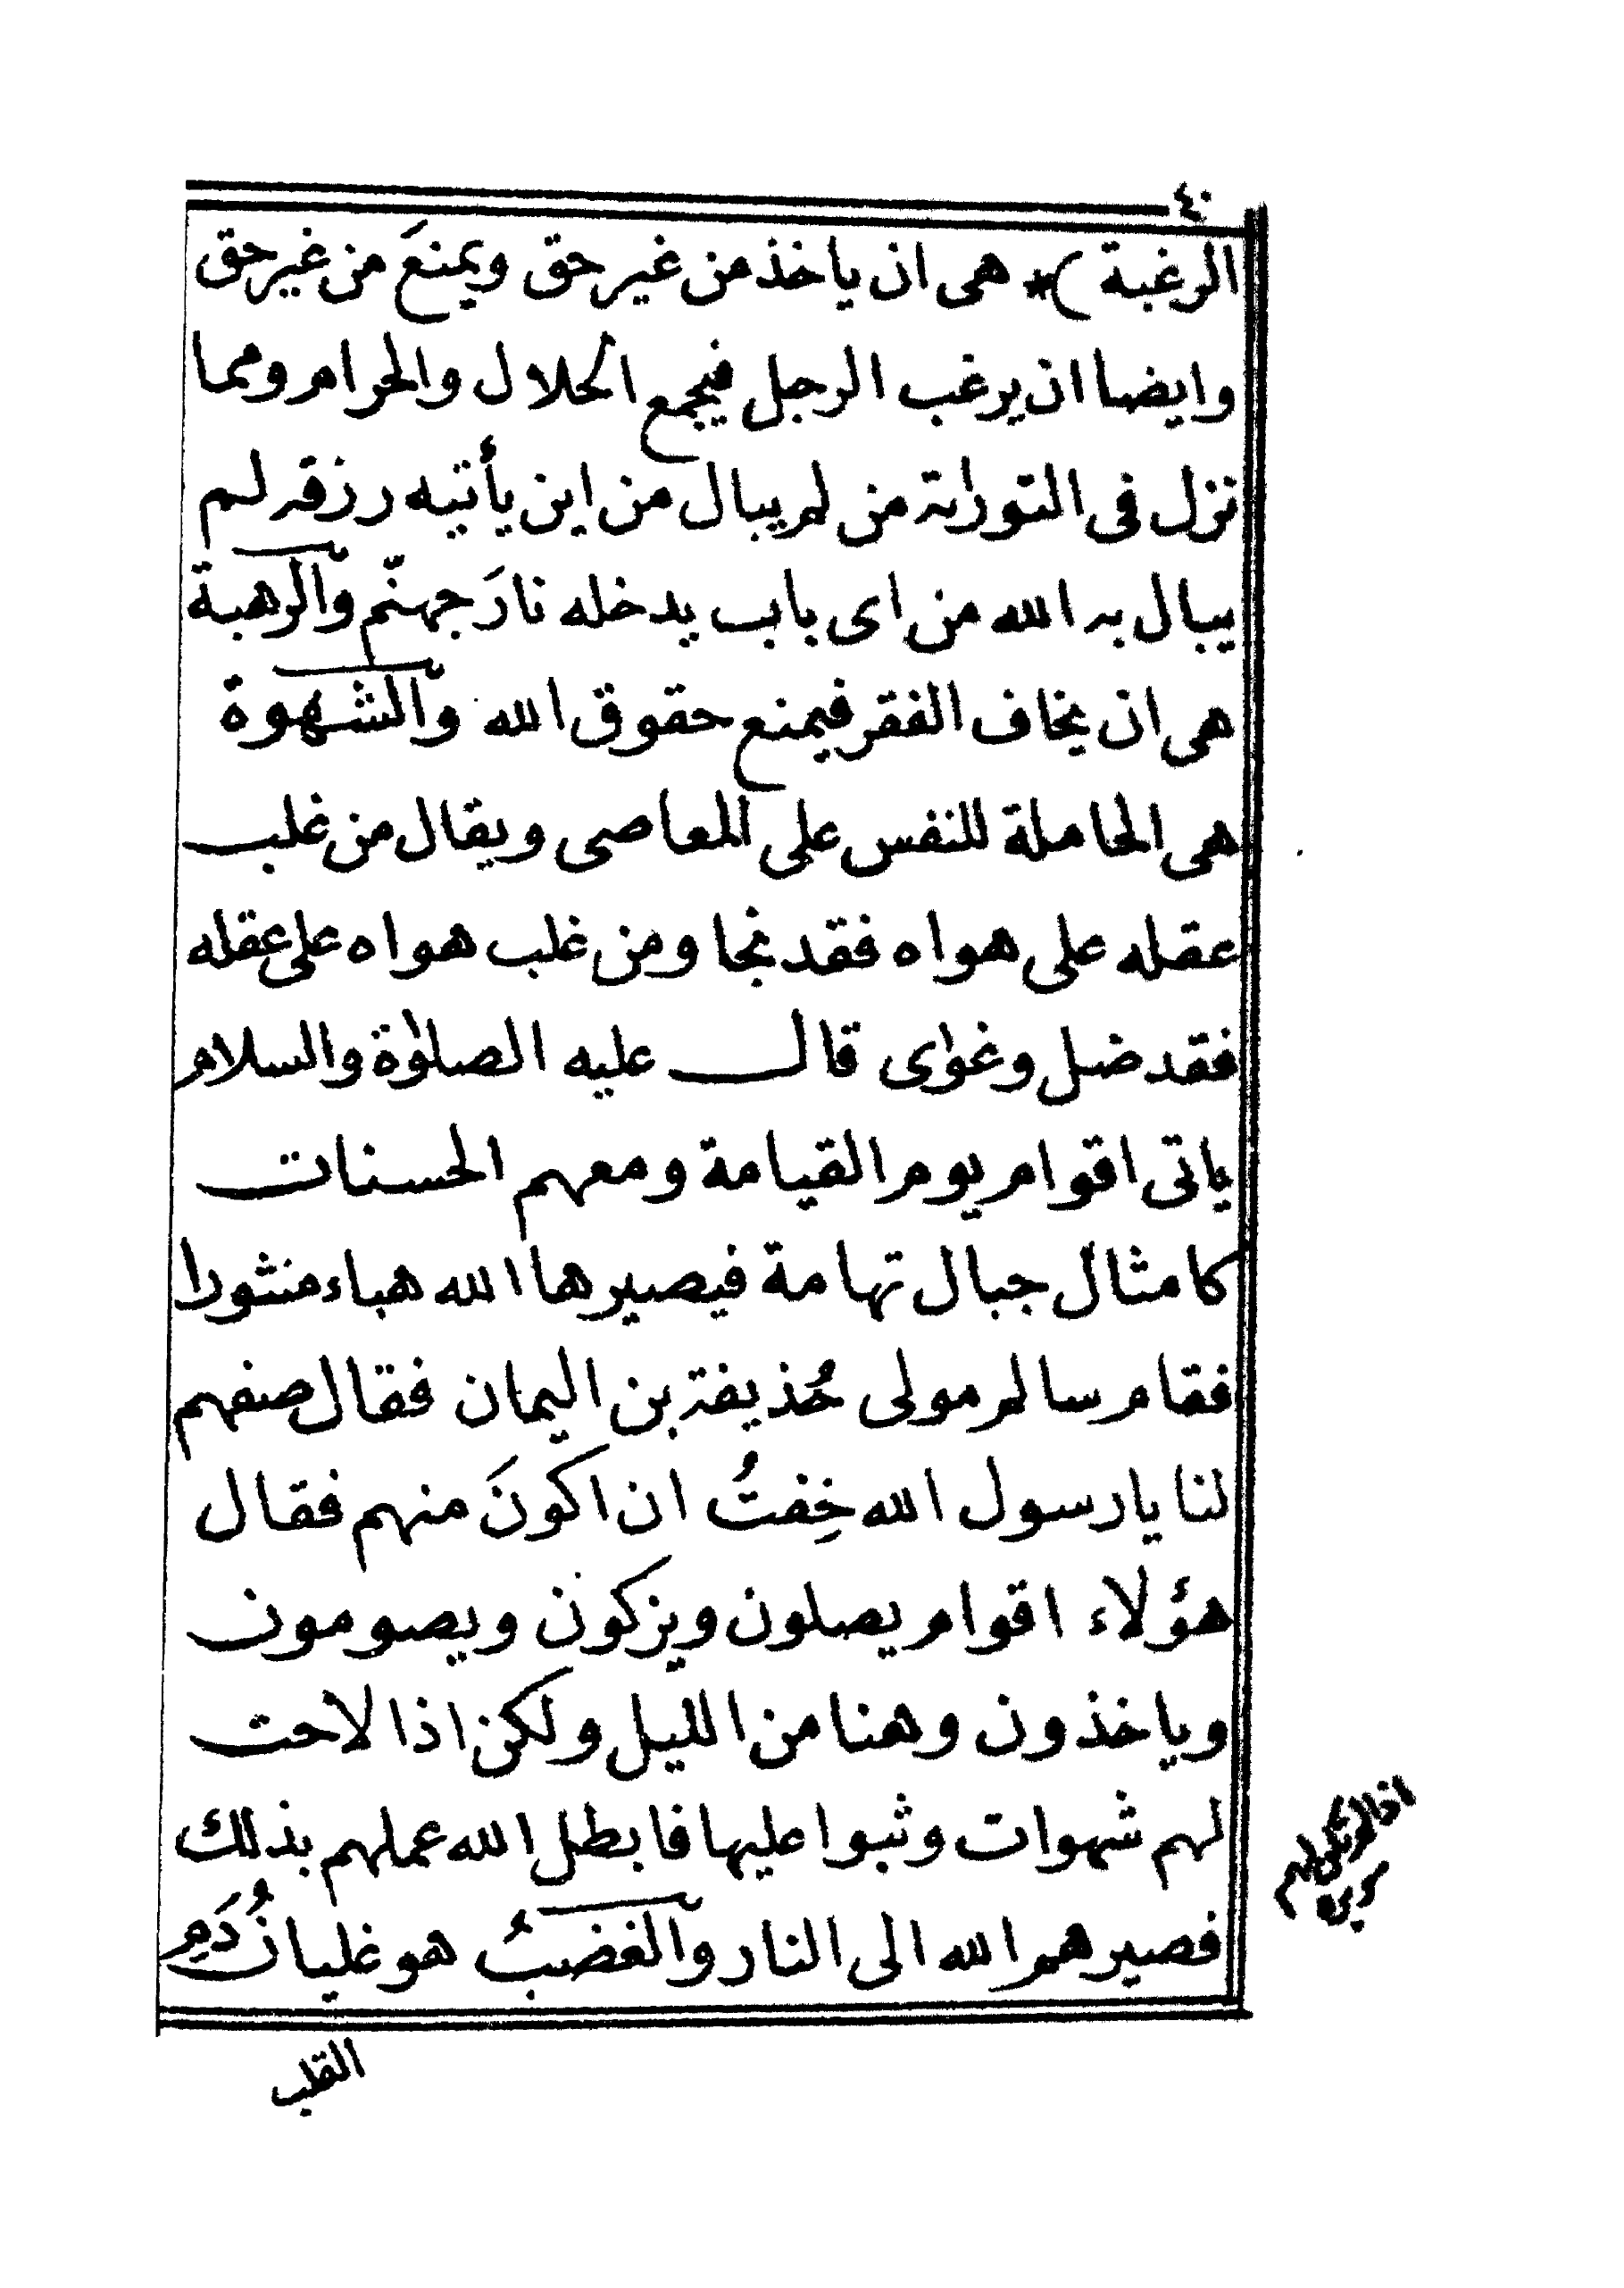 ٤٠
الرغبة ) * هى ان ياخذ من غير حق ويمنعَ من غير حق
وايضا ان يرغب الرجل فيجمع الحلال والحرام ومما
نزل فى التورٰىة من لم يبال من اين يأتيه رزقه لم
يبال به الله من اى باب يدخله نارَ جهنّم والرهبة
هى ان يخاف الفقر فيمنع حقوق الله والشهوة
هى الحاملة للنفس على المعاصى ويقال من غلب
عقله على هواه فقد نجا ومن غلب هواه على عقله
فقد ضل وغوٰى قال عليه الصلوٰة والسلام
ياتى اقوام يوم القيامة ومعهم الحسنات
كامثال جبال تهامة فيصيرها الله هباء منثورا
فقام سالم مولى حُذيفة بن اليمان فقال صفهم
لنا يا رسول الله خِفتُ ان اكونَ منهم فقال
هؤلاء اقوام يصلون ويزكون ويصومون
وياخذون وهنا من الليل ولكن اذا لاحت
لهم شهوات وثبوا عليها فابطل الله عملهم بذلك
فصيرهم الله الى النار والغضبُ هو غليانُ دَمِ
القلب